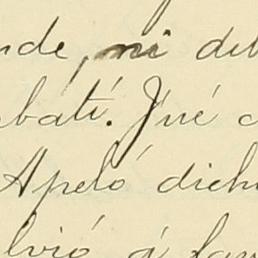 nde, ni deb
batí. Fué c
Apeló dich
lvió á fav